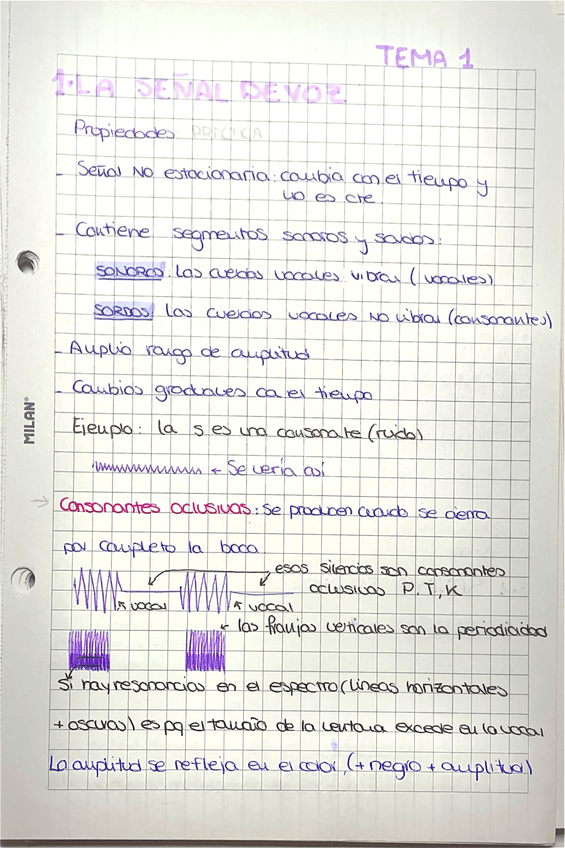 TEMA 1
1. LA SEÑAL DE VOZ
Propiedades
- Señal NO estacionaria: cambia con el tiempo y
no es cte.
- Contiene segmentos sonoros y sordos:
SONOROS: Las cuerdas vocales vibran (vocales)
SORDOS: las cuerdas vocales NO vibran (consonantes)
- Amplio rango de amplitud
- Cambios graduales en el tiempo
MILAN®
Ejemplo: la s es una consonante (ruido)
← Se vería así
→ Consonantes oclusivas: Se producen cuando se cierra
por completo la boca.
esos silencios son consonantes
oclusivas P, T, K
↖ vocal
↖ vocal
← las franjas verticales son la periodicidad
Si hay resonancias en el espectro (líneas horizontales
+ oscuras) es pq el tamaño de la ventana excede en la vocal
La amplitud se refleja en el color, (+ negro + amplitud)